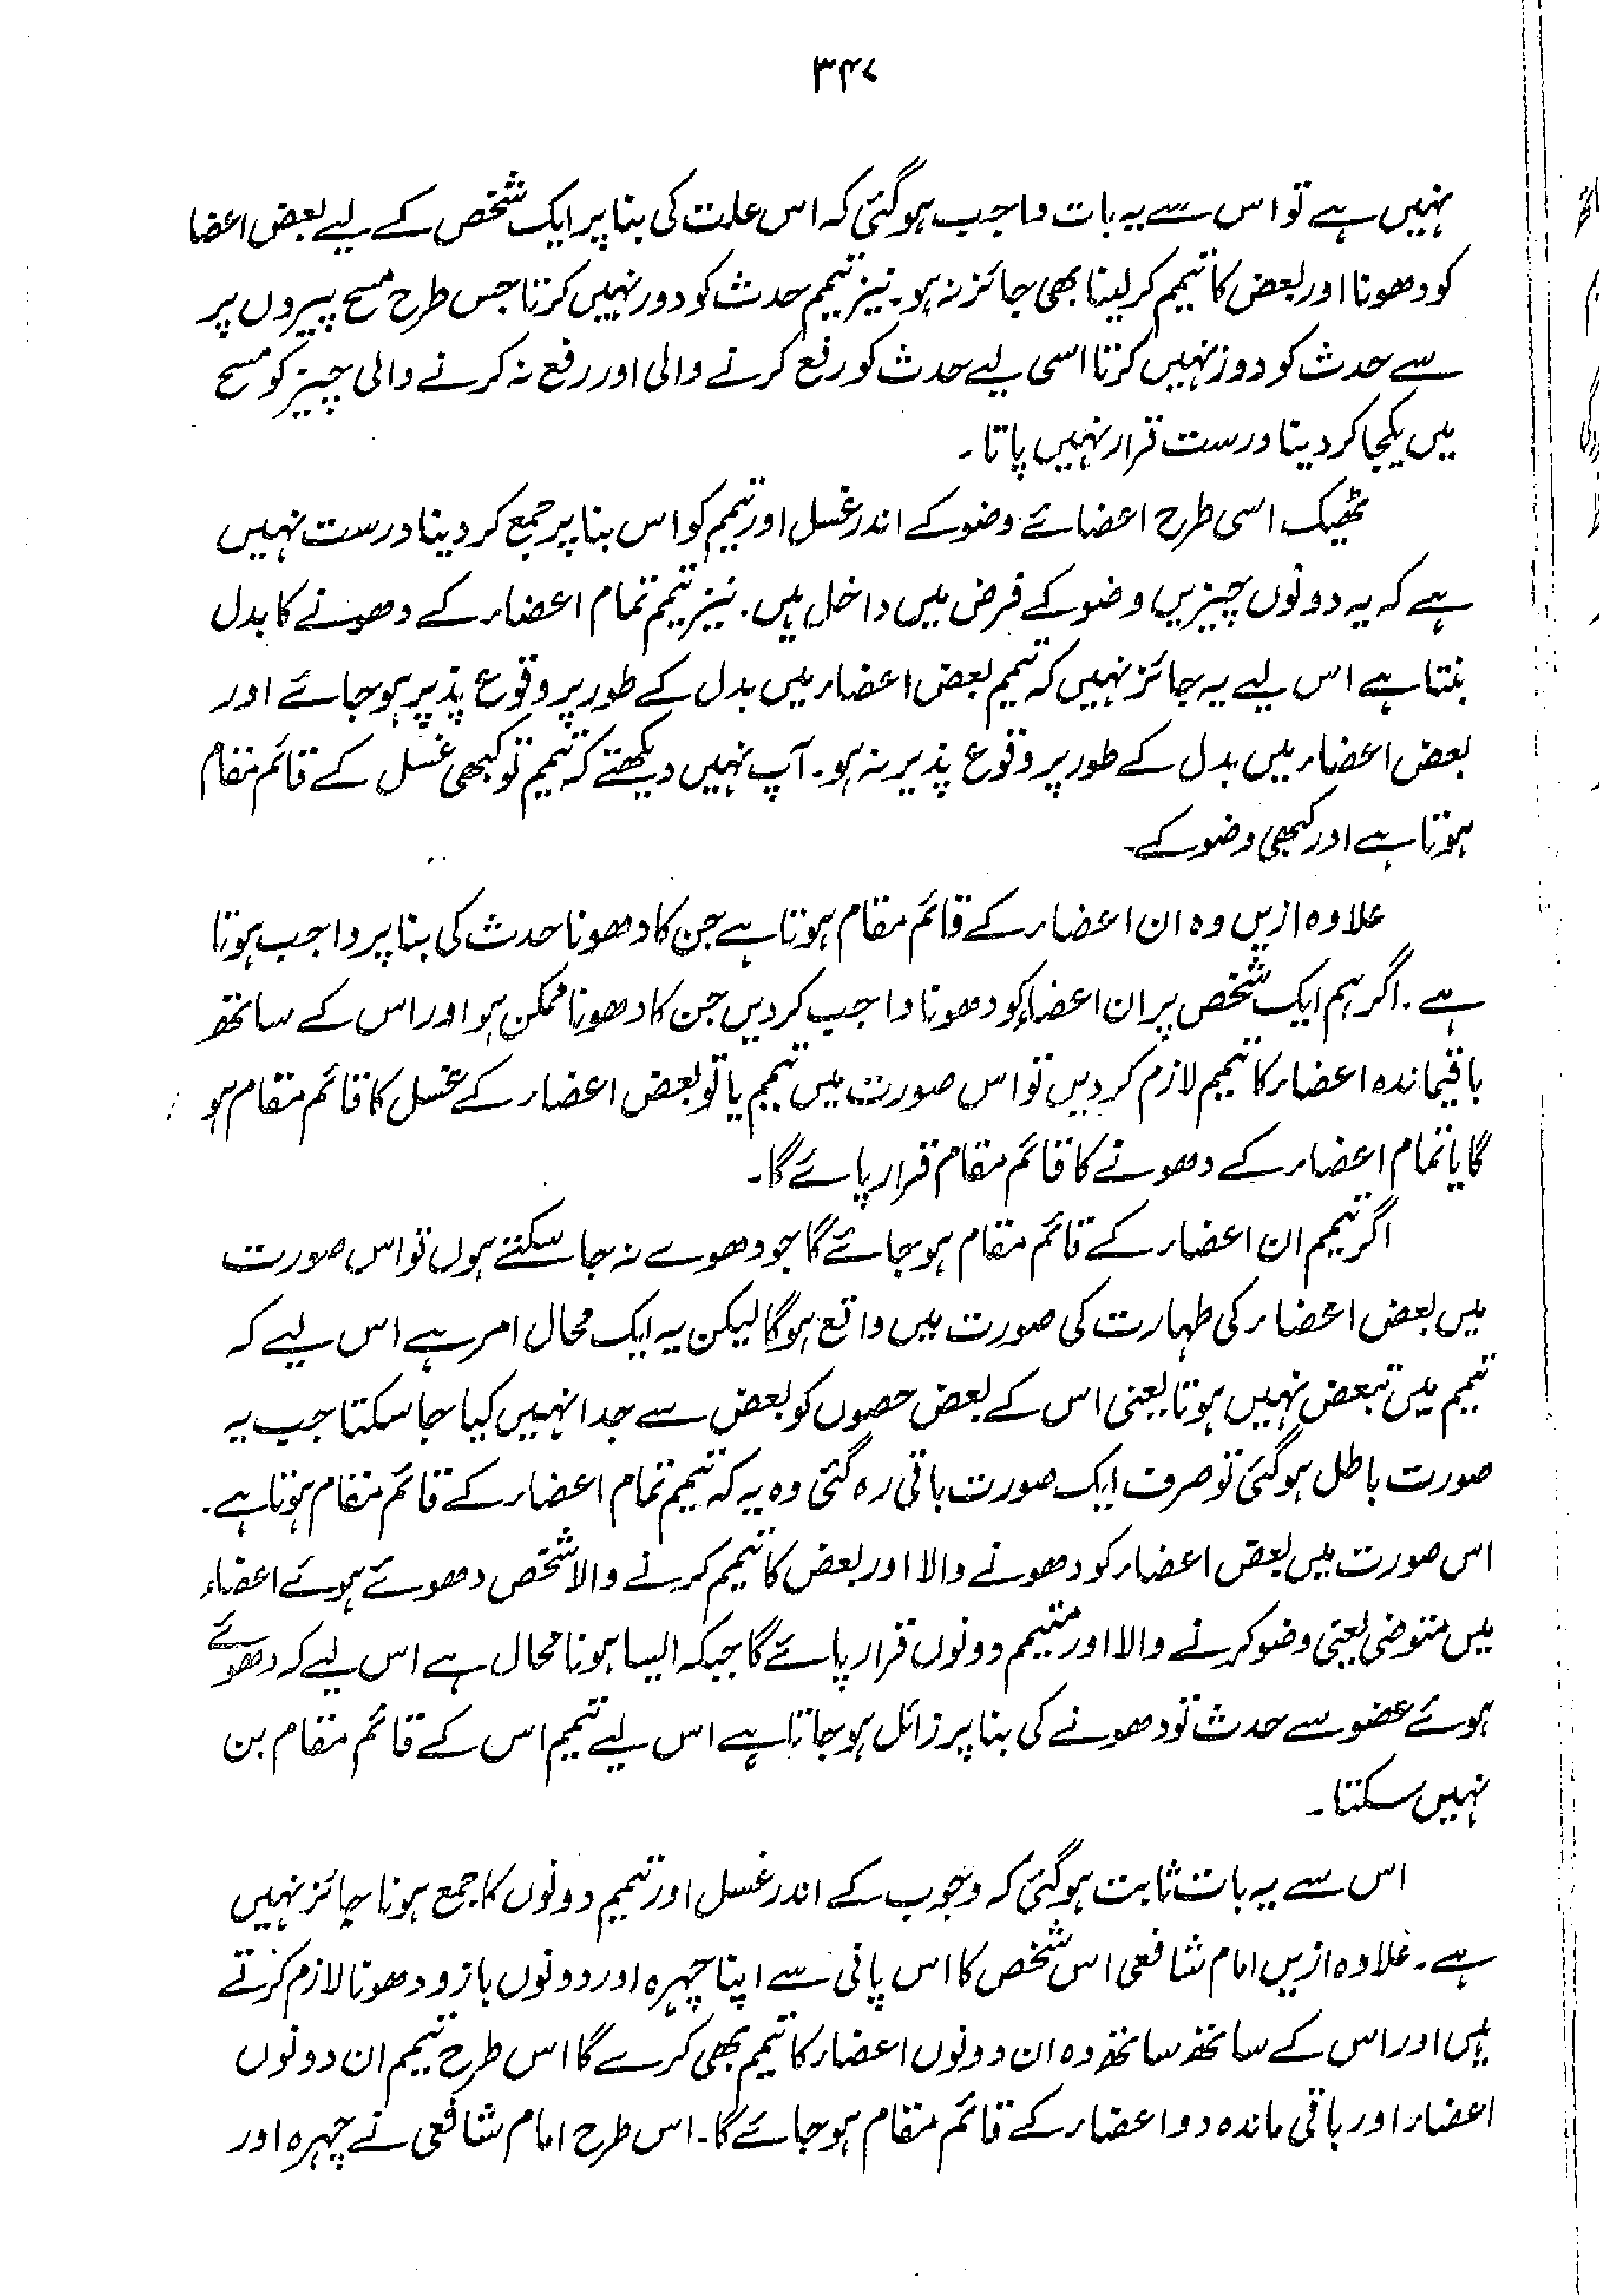 ۳۴۷
نہیں ہے تو اس سے یہ بات واجب ہوگئی کہ اس علت کی بنا پر ایک شخص کے لیے بعض اعضا
کو دھونا اور بعض کا تیمم کرلینا بھی جائز نہ ہو۔ نیز تیمم حدث کو دور نہیں کرتا جس طرح مسح پیروں پر
سے حدث کو دور نہیں کرتا اسی لیے حدث کو رفع کرنے والی اور رفع نہ کرنے والی چیز کو مسح
میں یکجا کر دینا درست قرار نہیں پاتا۔
ٹھیک اسی طرح اعضائے وضو کے اندر غسل اور تیمم کو اس بنا پر جمع کر دینا درست نہیں
ہے کہ یہ دونوں چیزیں وضو کے فرض میں داخل ہیں۔ نیز تیمم تمام اعضاء کے دھونے کا بدل
بنتا ہے اس لیے یہ جائز نہیں کہ تیمم بعض اعضاء میں بدل کے طور پر وقوع پذیر ہو جائے اور
بعض اعضاء میں بدل کے طور پر وقوع پذیر نہ ہو۔ آپ نہیں دیکھتے کہ تیمم تو کبھی غسل کے قائم مقام
ہوتا ہے اور کبھی وضو کے۔
علاوہ ازیں وہ ان اعضاء کے قائم مقام ہوتا ہے جن کا دھونا حدث کی بنا پر واجب ہوتا
ہے۔ اگر ہم ایک شخص پر ان اعضاء کو دھونا واجب کردیں جن کا دھونا ممکن ہو اور اس کے ساتھ
باقیماندہ اعضاء کا تیمم لازم کر دیں تو اس صورت میں تیمم یا تو بعض اعضاء کے غسل کا قائم مقام ہو
گا یا تمام اعضاء کے دھونے کا قائم مقام قرار پائے گا۔
اگر تیمم ان اعضاء کے قائم مقام ہو جائے گا جو دھوے نہ جا سکتے ہوں تو اس صورت
میں بعض اعضاء کی طہارت کی صورت میں واقع ہوگا لیکن یہ ایک محال امر ہے اس لیے کہ
تیمم میں تبعض نہیں ہوتا یعنی اس کے بعض حصوں کو بعض سے جدا نہیں کیا جا سکتا جب یہ
صورت باطل ہوگئی تو صرف ایک صورت باقی رہ گئی وہ یہ کہ تیمم تمام اعضاء کے قائم مقام ہوتا ہے۔
اس صورت میں بعض اعضاء کو دھونے والا اور بعض کا تیمم کرنے والا شخص دھوئے ہوئے اعضاء
میں متوضی یعنی وضو کرنے والا اور متیمم دونوں قرار پائے گا جبکہ ایسا ہونا محال ہے اس لیے کہ دھوئے
ہوئے عضو سے حدث تو دھونے کی بنا پر زائل ہو جاتا ہے اس لیے تیمم اس کے قائم مقام بن
نہیں سکتا۔
اس سے یہ بات ثابت ہوگئی کہ وجوب کے اندر غسل اور تیمم دونوں کا جمع ہونا جائز نہیں
ہے۔ علاوہ ازیں امام شافعی اس شخص کا اس پانی سے اپنا چہرہ اور دونوں بازو دھونا لازم کرتے
ہیں اور اس کے ساتھ ساتھ وہ ان دونوں اعضاء کا تیمم بھی کرے گا اس طرح تیمم ان دونوں
اعضاء اور باقی ماندہ دو اعضاء کے قائم مقام ہو جائے گا۔ اس طرح امام شافعی نے چہرہ اور